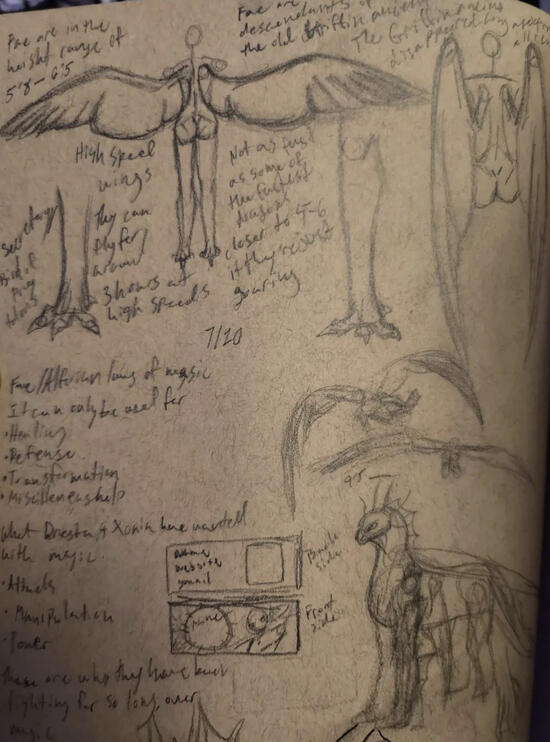 Fae are in the
height range of
5'8 – 6'5
Fae are
descendants of
the old Griffin ancients
The Griffin aliens
disappeared long
High speed
wings
They can
fly for
around
3 hours at
high speeds
Not as fast
as some of
the fastest
dragons
closer to 5-6
if they resort
soaring
Secretary
Bird of
Prey
talons
7/20
Fae/Alferian laws of magic
It can only be used for
•Healing
•Defense
•Transformation
•Miscilleneus help
what & Xonia have
with magic.
•Attack
•Manipulation
•Power
these are why they have been
fighting for so long over
magic
Name
website
gmail
Back
side
None
Front
side